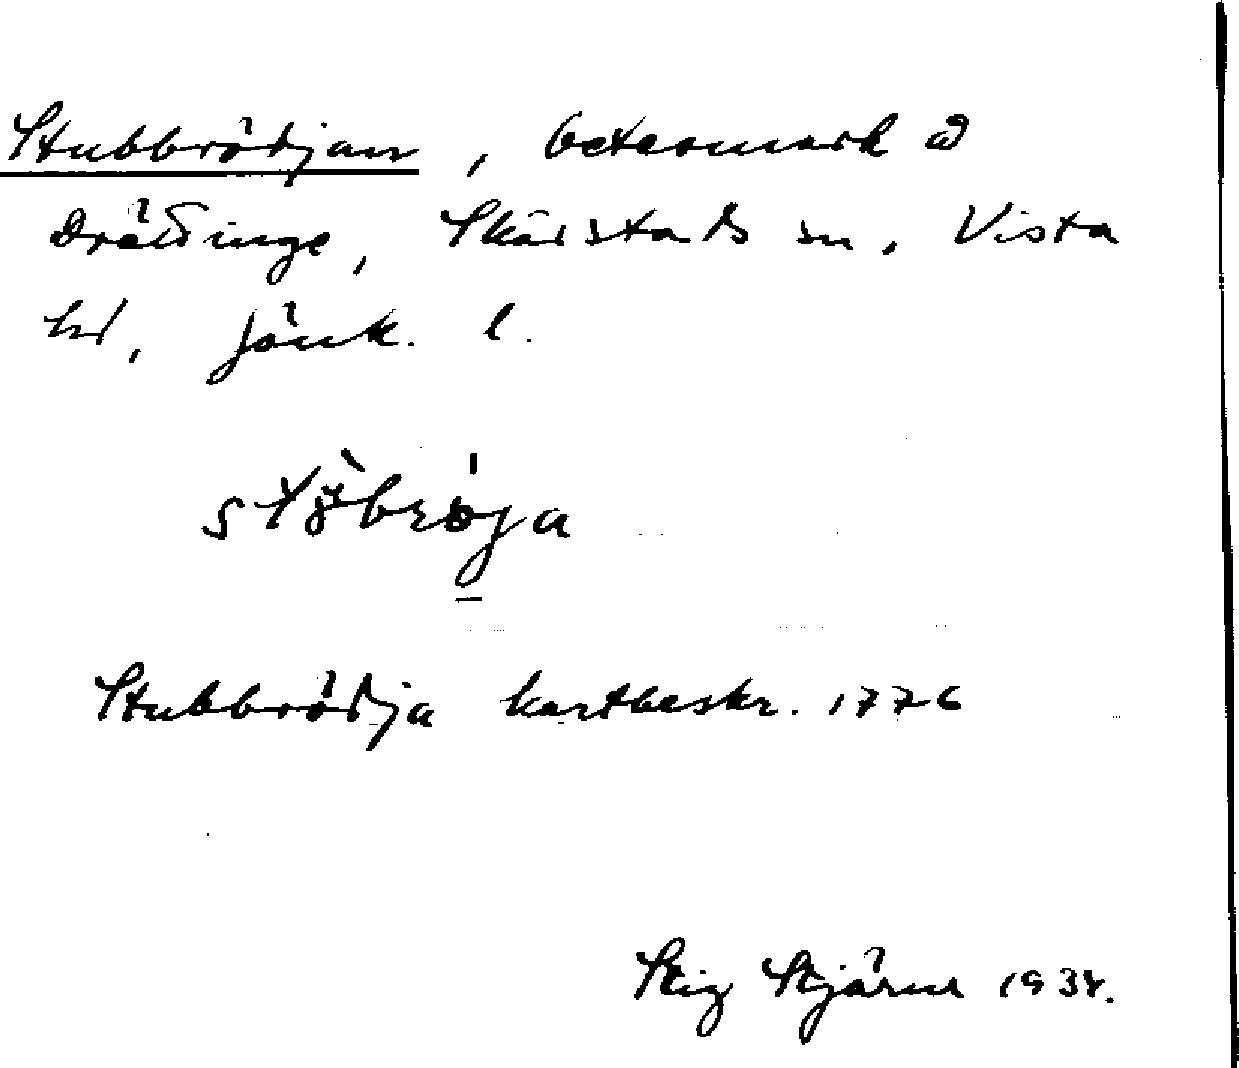 Stubbrödjan, betesmark å
Drättinge, Skärstads sn, Vista
hd, Jönk. l.
Stubbrödja kartbeskr. 1776
Stig Stjärne 193